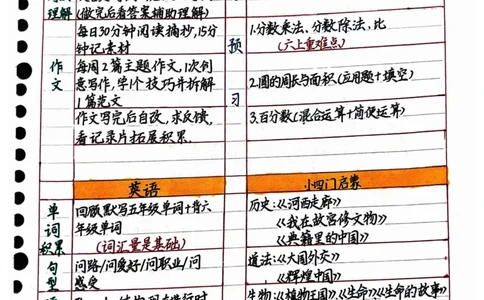 理解 (做完后看答案辅助理解)
每日30分钟阅读摘抄,15分
钟记素材
作文
每周2篇主题作文,1次创
意写作,学1个技巧并拆解
1篇范文
作文写完后自改,求反馈,
看记录片拓展积累.
预习
1.分数乘法、分数除法,比
(六上重难点)
2.圆的周长与面积(应用题+填空)
3.百分数(混合运算+简便运算)
英语
单词积累
回顾默写五年级单词+背六
年级单词
(词汇量是基础)
句型
问路/问爱好/问职业/问
感受
小四门启蒙
历史:《河西走廊》
《我在故宫修文物》
《典籍里的中国》
道法:《大国外交》
《辉煌中国》
生物:《植物王国》《生命》《生命的故事》